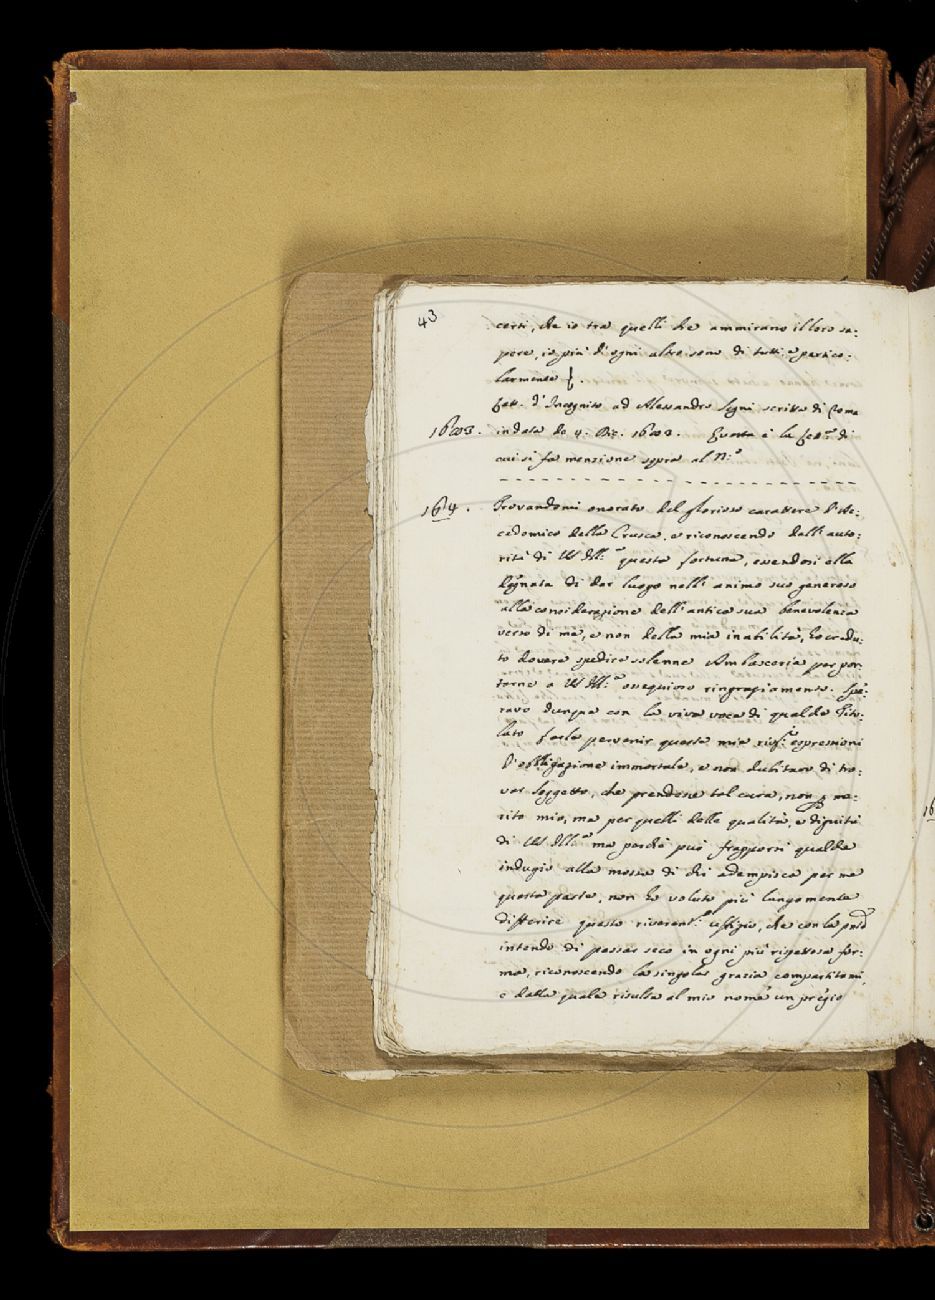 43
certi, che io tra quelli che ammirano il loro sa:
pere, io più d'ogni altro sono di tutti e partico:
larmente
Lett. d'Incognito ad Alessandro Segni scritta di Roma
in data de 4. Dic. Questa è la Lett.ª di
cui si fa menzione sopra al N.º
164.
Trovandomi onorato del glorioso carattere d'Ac:
cademico della Crusca, e riconoscendo dall'auto:
rità di VS Ill.ª questa fortuna, essendosi ella
degnata di dar luogo nell'animo suo generoso
alla considerazione dell'antica sua benevolenza
verso di me, e non della mia inabilità, ho credu:
to dovere spedire solenne Ambasceria per por:
tarne a VS Ill.ª ossequioso ringraziamento. Spe:
ravo dunque con la viva voce di qualche Tito:
lato farle pervenir queste mie espressioni
d'obbligazione immortale, e non dubitavo di tro:
var soggetto, che prendesse tal cura, non p me:
rito mio, ma per quelli delle qualità, e dignità
di VS Ill.ª ma perchè può frapporsi qualche
indugio alla mossa di chi adempisca per me
questa parte, non ho voluto più lungamente
differire questo riverent.º uffizio, che con la pnte
intendo di passar seco in ogni più rispettosa for:
ma, riconoscendo la singolar grazia compartitami,
e dalla quale risulta al mio nome un pregio